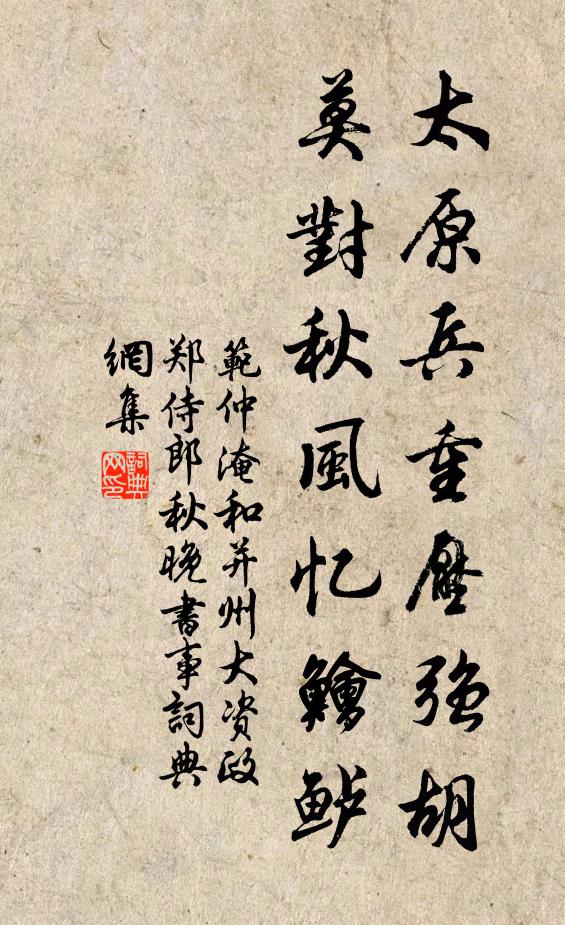 太原兵重壓强胡
莫對秋風忆鱠鲈
範仲淹和并州大资政
郑侍郎秋晚書事詞典
網集
詞典
网印